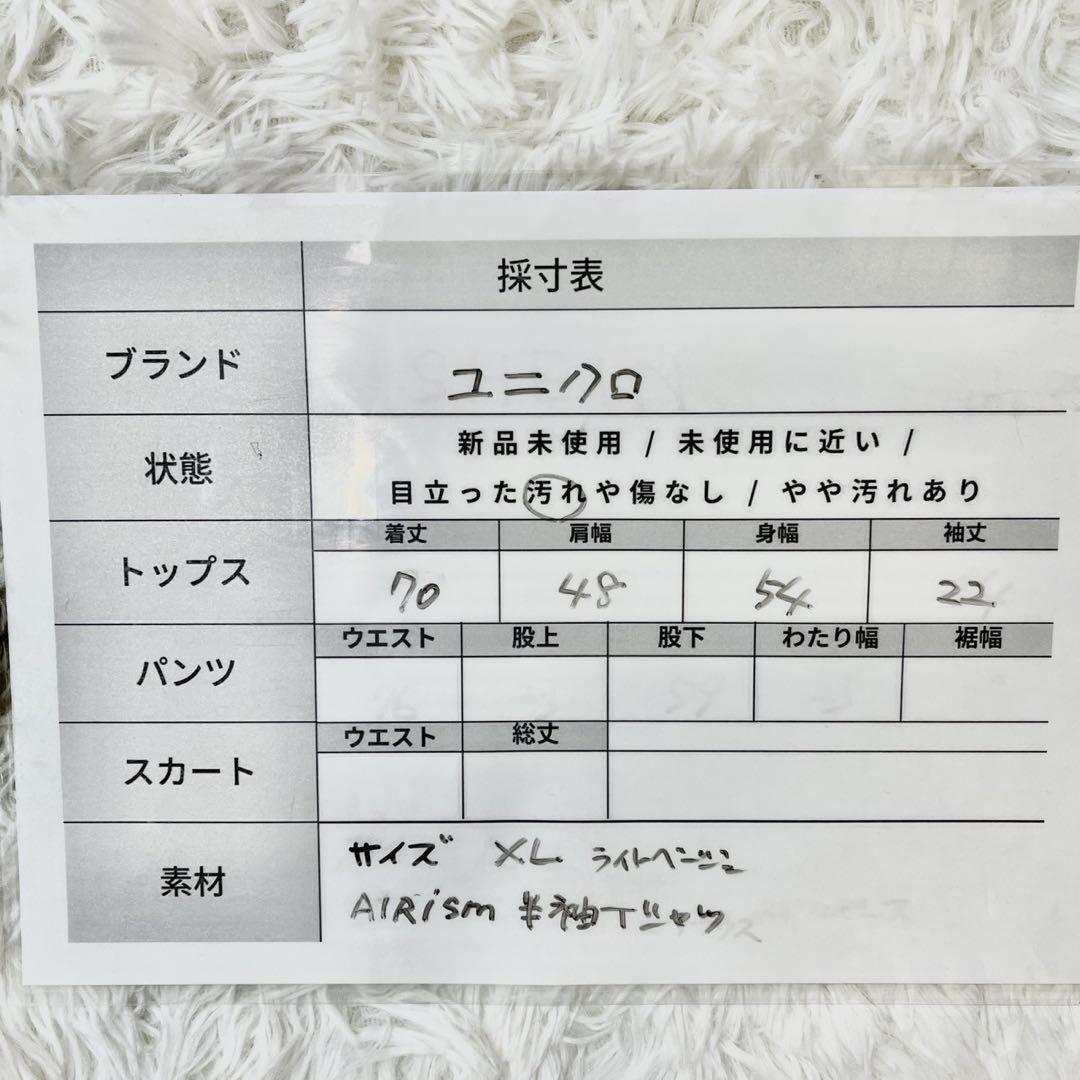 採寸表
ブランド
ユニクロ
状態
新品未使用 / 未使用に近い /
目立った汚れや傷なし / やや汚れあり
トップス
着丈 肩幅 身幅 袖丈
70 48 54 22
パンツ
ウエスト 股上 股下 わたり幅 裾幅
スカート
ウエスト 総丈
素材
サイズ XL ライトベージュ
AIRism 半袖Tシャツ